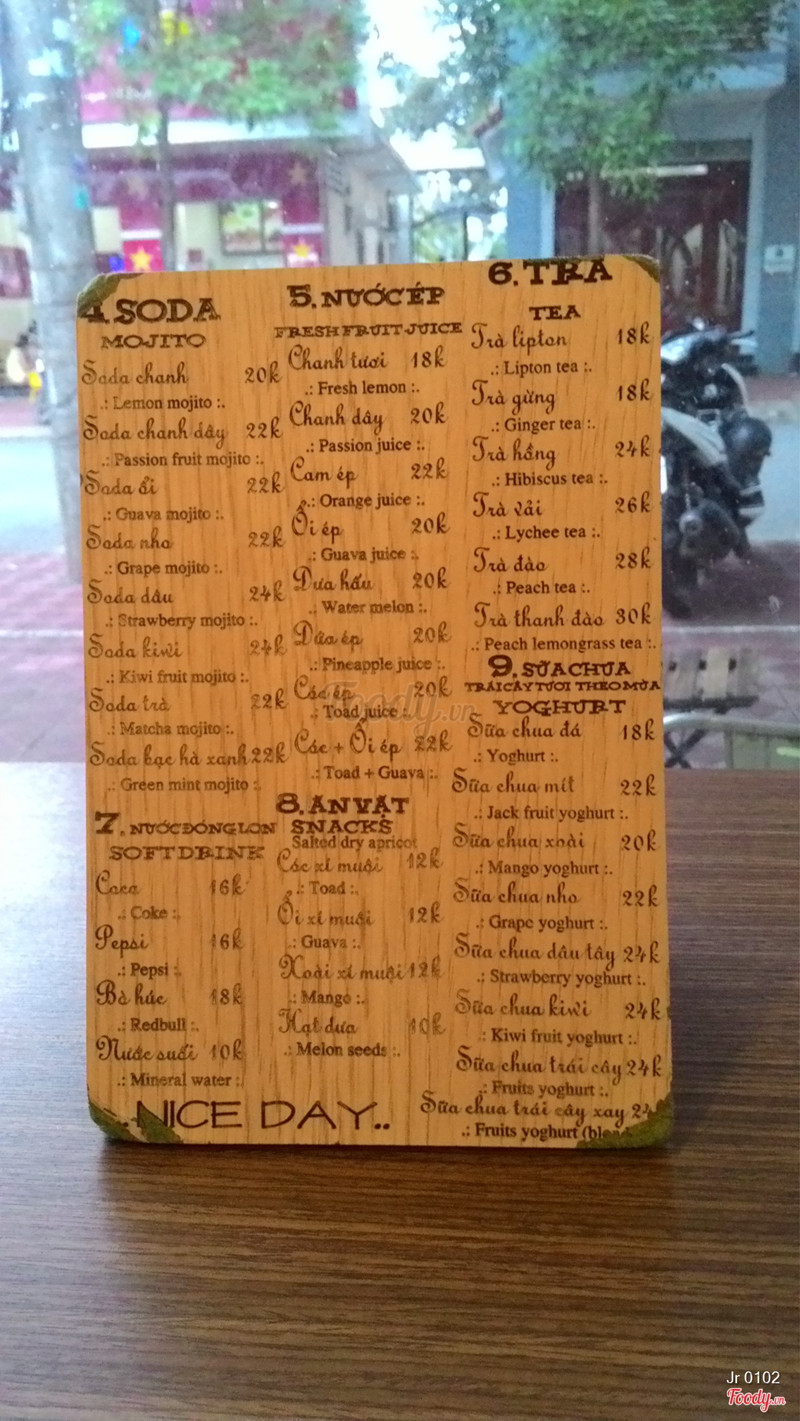 4.SODA
MOJITO
Soda chanh 20k
.: Lemon mojito :.
Soda chanh dây 22k
.: Passion fruit mojito :.
Soda ổi 22k
.: Guava mojito :.
Soda nho 22k
.: Grape mojito :.
Soda dâu 24k
.: Strawberry mojito :.
Soda kiwi 24k
.: Kiwi fruit mojito :.
Soda trà 22k
.: Matcha mojito :.
Soda bạc hà xanh 22k
.: Green mint mojito :.
5.NƯỚC ÉP
FRESH FRUIT JUICE
Chanh tươi 18k
.: Fresh lemon :.
Chanh dây 20k
.: Passion juice :.
Cam ép 22k
.: Orange juice :.
Ổi ép 20k
.: Guava juice :.
Dưa hấu 20k
.: Water melon :.
Dứa ép 20k
.: Pineapple juice :.
Cóc ép 20k
.: Toad juice :.
Cóc + Ổi ép 22k
.: Toad + Guava :.
6.TRÀ
TEA
Trà lipton 18k
.: Lipton tea :.
Trà gừng 18k
.: Ginger tea :.
Trà hồng 24k
.: Hibiscus tea :.
Trà vải 26k
.: Lychee tea :.
Trà đào 28k
.: Peach tea :.
Trà thanh đào 30k
.: Peach lemongrass tea :.
7.NƯỚC ĐÓNG LON
SOFT DRINK
Coca 16k
.: Coke :.
Pepsi 16k
.: Pepsi :.
Bò húc 18k
.: Redbull :.
Nước suối 10k
.: Mineral water :.
8.ĂN VẶT
SNACKS
Salted dry apricot
Cóc xí muội 12k
.: Toad :.
Ổi xí muội 12k
.: Guava :.
Xoài xí muội 12k
.: Mango :.
Hạt dưa 10k
.: Melon seeds :.
9.SỮA CHUA
TRÁI CÂY TƯƠI THEO MÙA
YOGHURT
Sữa chua đá 18k
.: Yoghurt :.
Sữa chua mít 22k
.: Jack fruit yoghurt :.
Sữa chua xoài 20k
.: Mango yoghurt :.
Sữa chua nho 22k
.: Grape yoghurt :.
Sữa chua dâu tây 24k
.: Strawberry yoghurt :.
Sữa chua kiwi 24k
.: Kiwi fruit yoghurt :.
Sữa chua trái cây 24k
.: Fruits yoghurt :.
Sữa chua trái cây xay
.: Fruits yoghurt
NICE DAY..
Foody.vn
Jr 0102
Foody.vn